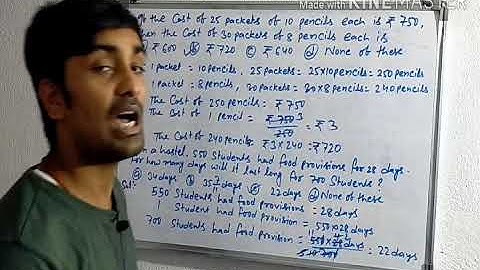 Made with KINEMASTER
the Cost of 25 packets of 10 pencils each is ₹ 750,
then the Cost of 30 packets of 8 pencils each is
₹ 600 ₹ 720 © ₹ 640 ⓓ None of these
1 packet = 10 pencils, 25 packets = 25×10 pencils = 250 pencils
1 packet = 8 pencils, 30 packets = 30×8 pencils = 240 pencils
The Cost of 250 pencils = ₹ 750
The Cost of 1 pencil = ₹ 750 3 / 250 = ₹ 3
The Cost of 240 pencils = ₹ 3 × 240 = ₹ 720
In a hostel, 550 students had food provisions for 28 days.
for how many days will it last long for 700 Students?
34 days 35 days 22 days ⓓ None of these
Sol:
550 Students had food provisions = 28 days
1 Student had food provision = 550×28 days
700 Students had food provision = 550×28 days / 700 = 22 days